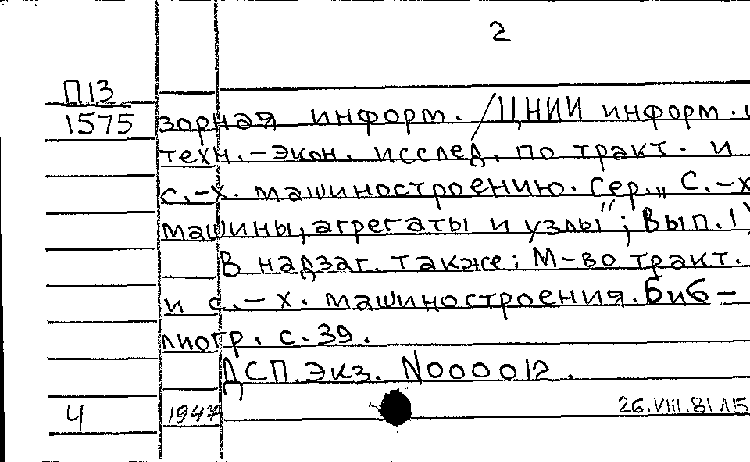 2
П13
1575 зорная информ. /ЦНИИ информ. и
техн.-экон. исслед. по тракт. и
с.-х. машиностроению. Сер. „ С.-х
машины, агрегаты и узлы"; Вып. 1)
В надзаг. также: М-во тракт.
и с.-х. машиностроения. Биб-
лиогр. с. 39.
ДСП. Экз. N000012.
4 1947 26.VIII.81.